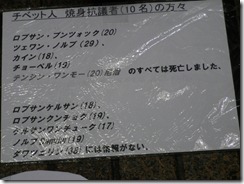 チベット人 焼身抗議者(10名)の方々
ロプサン・プンツォック(20)
ツェワン・ノルブ(29)、
カイン(18)、
チョーペル(19)
テンシン・ワンモー(20)尼僧 のすべては死亡しました、
ロプサンケルサン(18)、
ロプサンクンチョク(19)、
ケルサンワンチューク(17)
ノルブ (19)
ダワツェリン(38)には信頼がない、